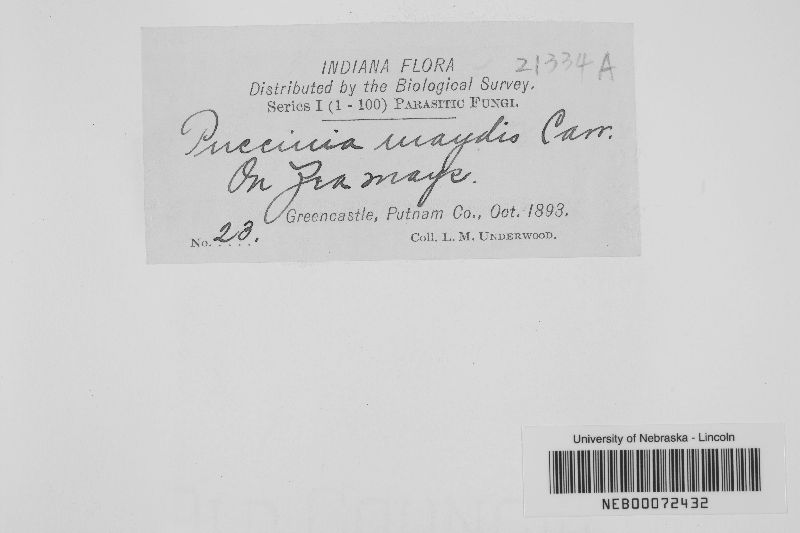 INDIANA FLORA 21334 A
Distributed by the Biological Survey.
Series I (1 - 100) PARASITIC FUNGI.
Puccinia maydis Carr.
On Zea mays.
Greencastle, Putnam Co., Oct. 1893.
No. 23. Coll. L. M. UNDERWOOD.
University of Nebraska - Lincoln
NEB00072432